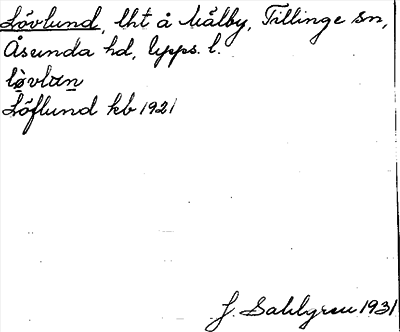 Lövlund, lht å Målby, Tillinge sn,
Åsunda hd, Upps. l.
lövlan
Löflund kb 1921
J. Sahlgren 1931